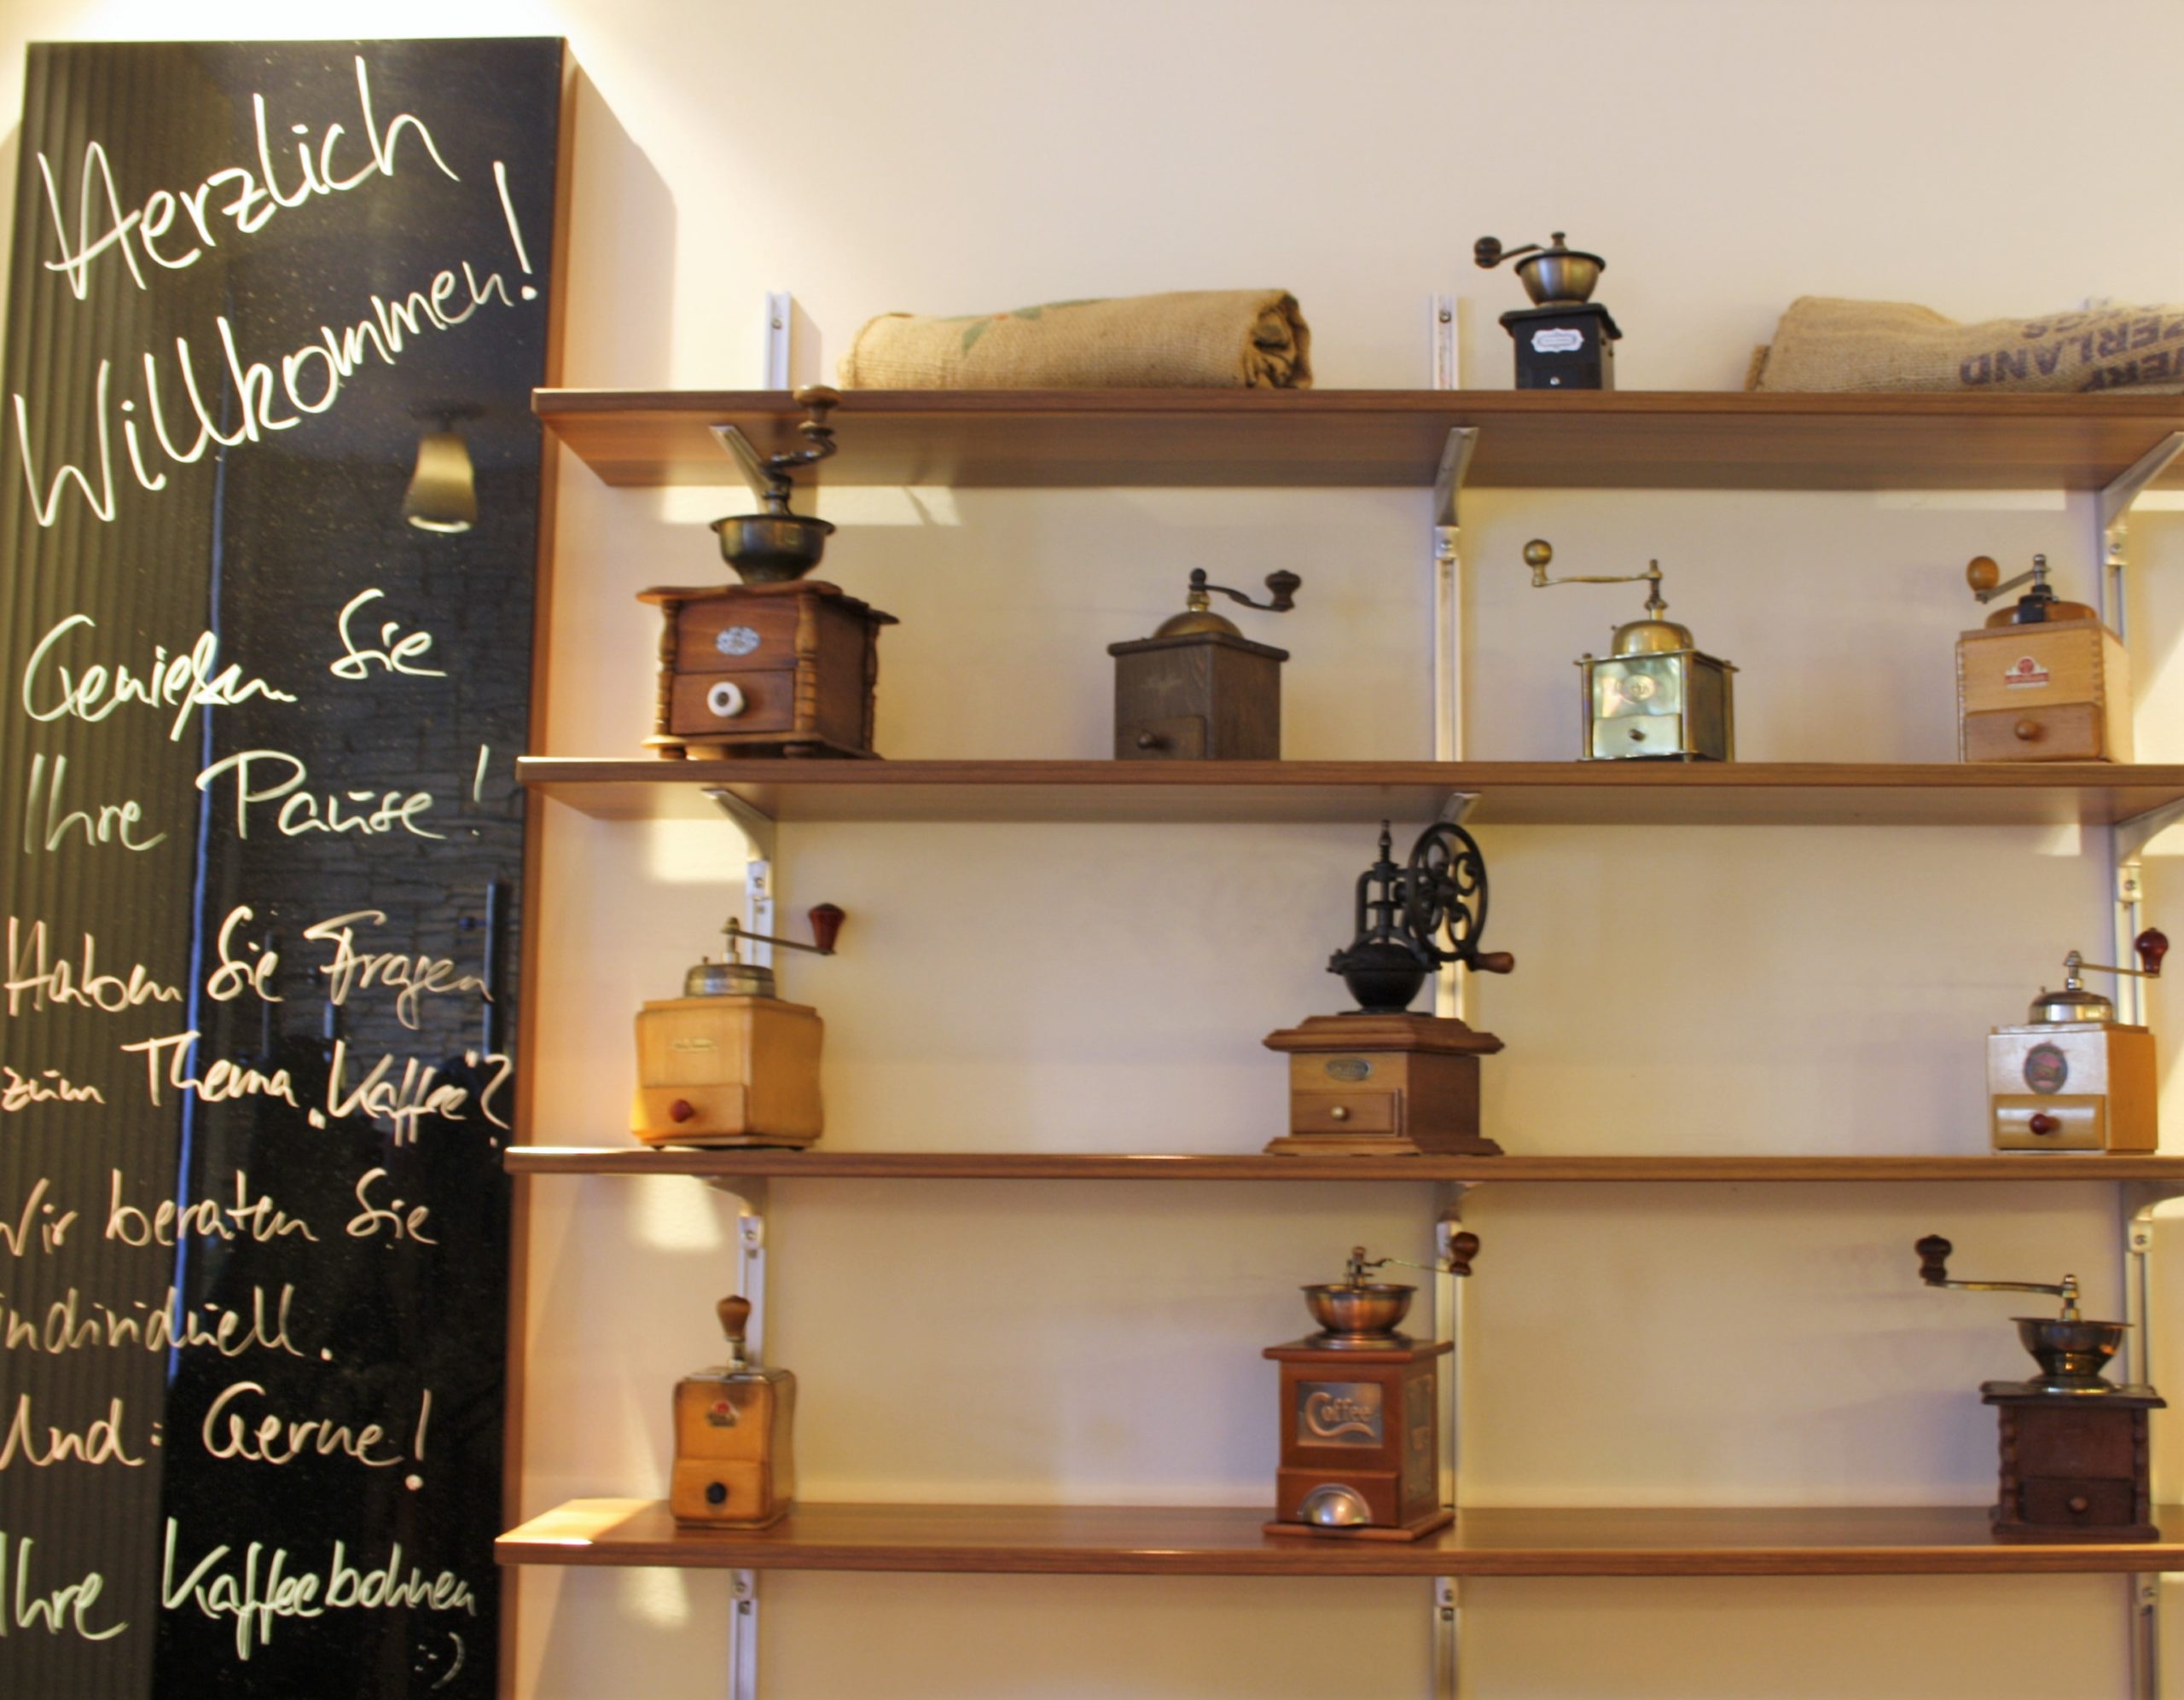 Herzlich
Willkommen!
Genießen Sie
Ihre Pause!
Haben Sie Fragen
zum Thema „Kaffee“?
Wir beraten Sie
individuell.
Und: Gerne!
Ihre Kaffeebohnen
:-)
Coffee